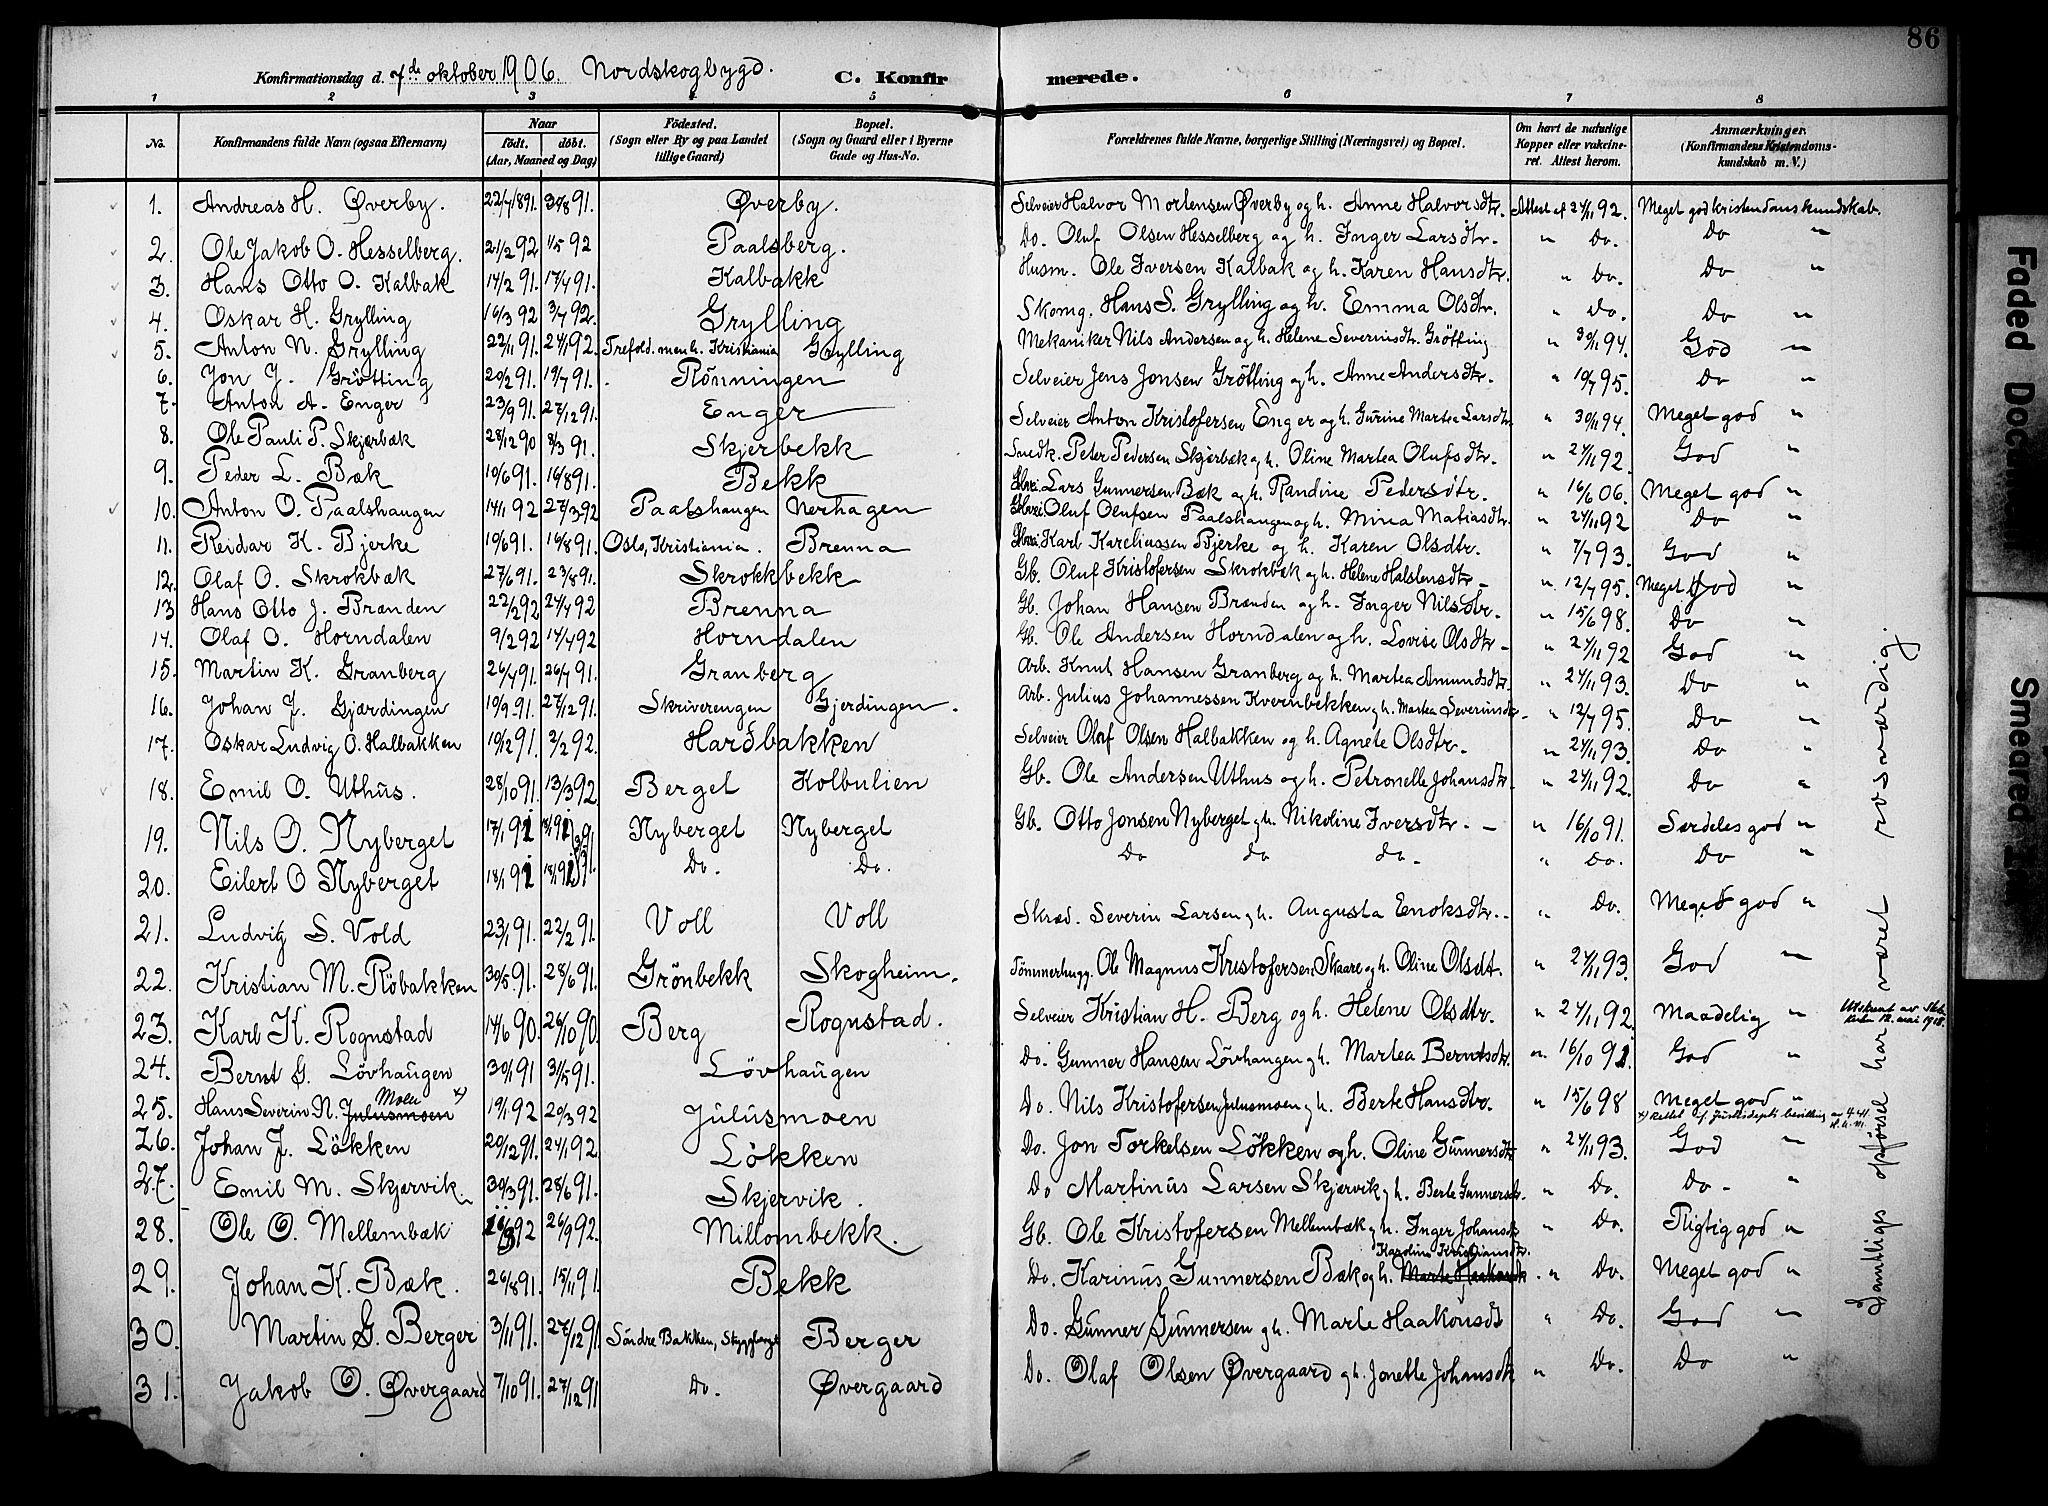 86
Konfirmationsdag d. 7de oktober 1906. Nordskogbygd. C. Konfirmerede.
1 2 3 4 5 6 7 8
No. Konfirmandens fulde Navn (ogsaa Efternavn) Naar født. døbt. (Aar, Maaned og Dag) Fødested. (Sogn eller By og paa Landet tillige Gaard) Bopæl. (Sogn og Gaard eller i Byerne Gade og Hus-No. Forældrenes fulde Navne, borgerlige Stilling (Næringsvei) og Bopæl. Om havt de naturlige Kopper eller vaccineret. Attest herom. Anmærkninger. (Konfirmandens Kristendomskundskab m. V.)
1. Andreas H. Øverby. 22/7 1891. 30/8 91. Øverby. Selveier Halvor Mortensen Øverby og h. Anne Halvorsdtr. Attest af 24/11 92. Meget god kristendomskundskab.
2. Ole Jakob O. Hesselberg. 21/2 92 1/5 92 Paalsberg. Do. Oluf Olsen Hesselberg og h. Inger Larsdtr. " Do. Do "
3. Hans Otto O. Kalbak 14/2 91. 17/4 91. Kalbakk Husm. Ole Iversen Kalbak og h. Karen Hansdtr. " Do. Do "
4. Oskar H. Grylling 16/3 92 3/7 92. Grylling Skomg. Hans S. Grylling og h. Emma Olsdtr. " Do. Do "
5. Anton N. Grylling 22/11 91. 24/1 92. Trefold. menh. Kristiania Grylling Mekaniker Nils Andersen og h. Helene Severinsdtr. Grøtting " 30/11 94. God "
6. Jon J. Grøtting 20/2 91. 19/7 91. Rönningen Selveier Jens Jonsen Grøtting og h. Anne Andersdtr. " 19/7 95. Do "
7. Anton A. Enger 23/9 91. 27/12 91. Enger Selveier Anton Kristofersen Enger og h. Gurine Martea Larsdtr. " 30/11 94. Meget god "
8. Ole Pauli P. Skjærbæk 28/12 90 8/3 91. Skjerbekk Snedk. Peter Pedersen Skjærbæk og h. Oline Martea Olufsdtr. " 24/11 92. God "
9. Peder L. Bæk 10/6 91. 16/8 91. Bekk Lars Gunnersen Bæk og h. Randine Pedersdtr. " 16/6 06. Meget god "
10. Anton O. Paalshaugen 14/1 92 27/3 92 Paalshaugen Nerhagen Oluf Olufsen Paalshaugen og h. Mina Matiasdtr. " 24/11 92 Do "
11. Reidar K. Bjerke 10/6 91. 16/8 91. Oslo, Kristiania. Brenna Karl Kareliussen Bjerke og h. Karen Olsdtr. " 7/7 93. God "
12. Olaf O. Skrokbæk 27/6 91. 23/8 91. Skrokkbekk Gb. Oluf Kristofersen Skrokbæk og h. Helene Halstensdtr. " 12/7 95. Meget god "
13 Hans Otto J. Brænden 22/2 92 24/4 92 Brenna Gb. Johan Hansen Brænden og h. Inger Nilsdtr. " 15/6 98. Do "
14. Olaf O. Horndalen 9/2 92 14/4 92 Horndalen Gb. Ole Andersen Horndalen og h. Lovise Olsdtr. " 24/11 92 God "
15. Martin K. Granberg 26/4 91 26/7 91. Granberg Arb. Knut Hansen Granberg og h. Martea Amundsdtr. " 24/11 93. Do "
16. Johan J. Gjærdingen 10/9 91. 27/12 91. Skriverengen Gjerdingen. Arb. Julius Johannessen Kvernbekken og h. Martea Severinsdtr. " 12/7 95. Do "
17. Oskar Ludvig O. Halbakken 10/12 91. 2/2 92. Hardbakken Selveier Olaf Olsen Halbakken og h. Agnete Olsdtr. " 24/11 93. Do "
18. Emil O. Uthus. 28/10 91. 13/3 92. Berget Kolbulien Gb. Ole Andersen Uthus og h. Petronelle Johansdtr. " 24/11 92. Do "
19. Nils O. Nyberget 17/1 91 Nyberget Nyberget Gb. Otto Jonsen Nyberget og h. Nikoline Iversdtr. " 16/10 91. Særdeles god "
20. Eilert O Nyberget 18/1 91 Do. Do. Do do do. " Do. Do "
21. Ludvig S. Vold 23/1 91. 22/2 91. Voll Voll Skræd. Severin Larsen og h. Augusta Enoksdtr. " Do. Meget god "
22. Kristian M. Röbakken 30/5 91. 28/6 91. Grönbekk Skogheim. Tömmerhugg. Ole Magnus Kristofersen Skaare og h. Oline Olsdt. " 24/11 93. God "
23. Karl K. Rognstad 14/6 90. 26/10 90. Berg Rognstad. Selveier Kristian H. Berg og h. Helene Olsdtr. " 24/11 92. Maadelig " Utskrevet av 12. mai 1918.
24. Bernt G. Lövhaugen 30/1 91 31/5 91. Lövhaugen Do. Gunner Hansen Lövhaugen og h. Martea Berntsdtr. " 16/10 91. God "
25. Hans Severin N. Julusmoen Moen x) 19/1 92 20/3 92 Julusmoen Do. Nils Kristofersen Julusmoen og h. Berte Hansdtr. " 15/6 98 Meget god "
x) Rettet e/ Justisdepts bevilling av 4-41.
26. Johan J. Lökken 20/12 91. 24/1 92. Lökken Do. Jon Torkelsen Lökken og h. Oline Gunnersdtr " 24/11 93. God "
27. Emil M. Skjærvik 30/3 91. 28/6 91. Skjervik. Do Martinus Larsen Skjærvik og h. Berte Gunnersdtr. " Do. Do. "
28. Ole O. Mellembæk 26/9 92. Millombekk. Gb. Ole Kristofersen Mellembæk og h. Inger Johansdtr " Do. Rigtig god "
29. Johan K. Bæk. 26/8 91. 15/11 91. Bekk Do. Karinus Gunnersen Bæk og h. Marte Haakonsdtr Karoline Kristiansdtr. " Do. Meget god "
30. Martin G. Berger 3/11 91. 27/12 91. Söndre Bakken, Skyggberget Berger Do. Gunner Gunnersen og h. Marte Haakonsdt " Do. God "
31. Jakob O. Øvergaard 7/10 91. 27/12 91 Do. Øvergaard Do. Olaf Olsen Øvergaard og h. Jonette Johansdtr " Do. Do "
Samtliges opförsel har været rosværdig.
Faded Document
Smeared Ink